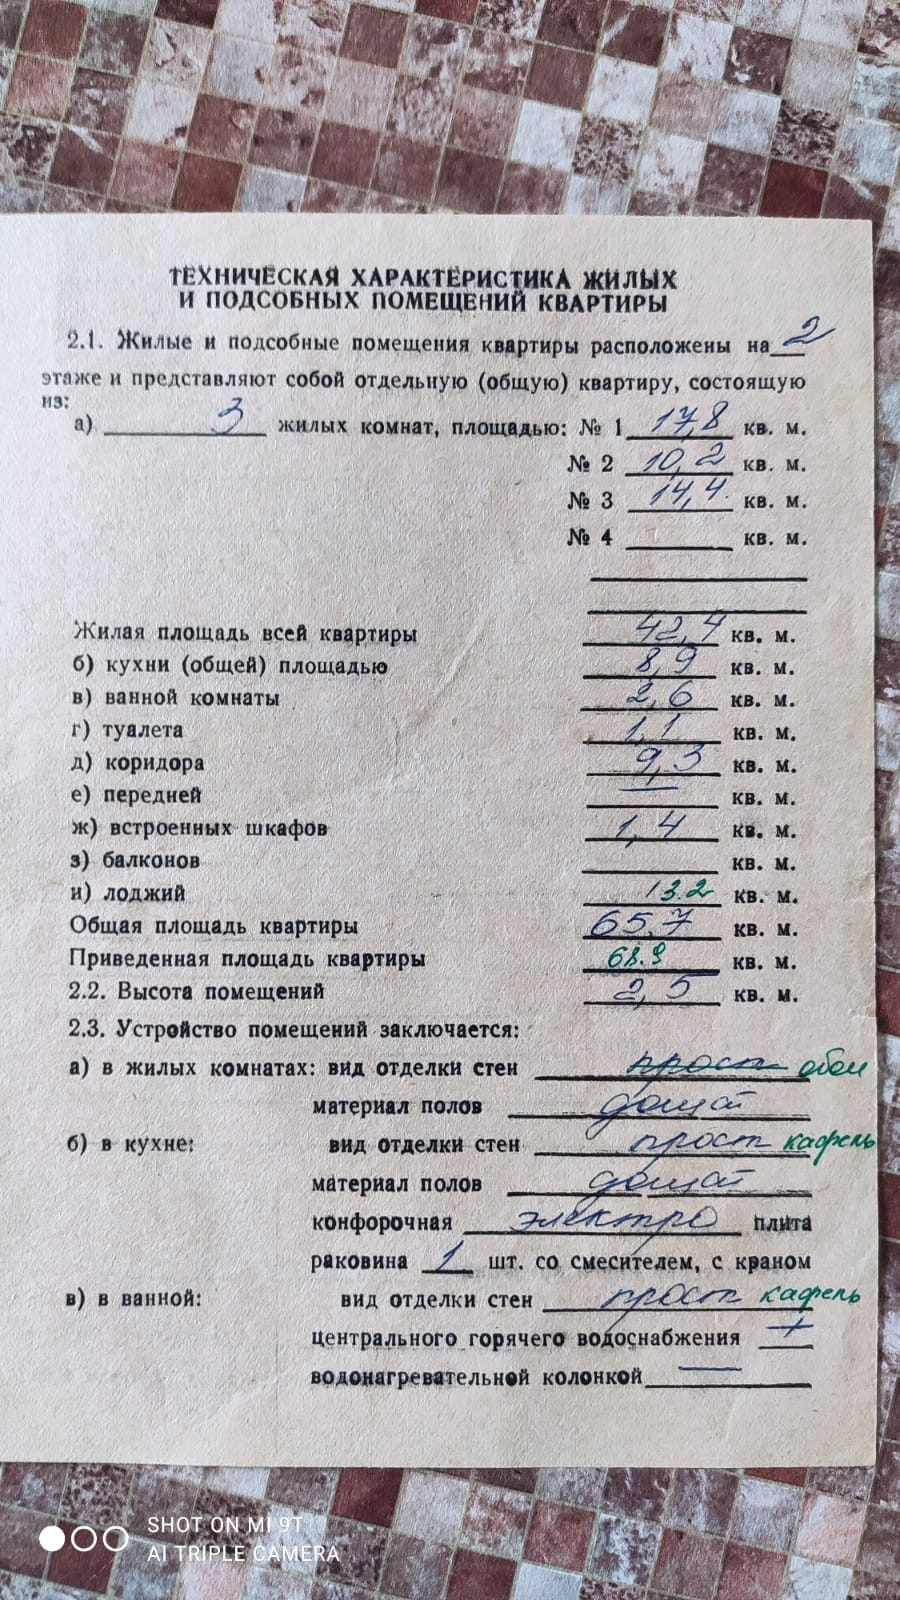 ТЕХНИЧЕСКАЯ ХАРАКТЕРИСТИКА ЖИЛЫХ
И ПОДСОБНЫХ ПОМЕЩЕНИЙ КВАРТИРЫ
2.1. Жилые и подсобные помещения квартиры расположены на 2
этаже и представляют собой отдельную (общую) квартиру, состоящую
из:
а) 3 жилых комнат, площадью: № 1 17,8 кв. м.
№ 2 10,2 кв. м.
№ 3 14,4 кв. м.
№ 4 кв. м.
Жилая площадь всей квартиры 42,4 кв. м.
б) кухни (общей) площадью 8,9 кв. м.
в) ванной комнаты 2,6 кв. м.
г) туалета 1,1 кв. м.
д) коридора 9,3 кв. м.
е) передней — кв. м.
ж) встроенных шкафов 1,4 кв. м.
з) балконов кв. м.
и) лоджий 3.2 кв. м.
Общая площадь квартиры 65.7 кв. м.
Приведенная площадь квартиры 68.9 кв. м.
2.2. Высота помещений 2,5 кв. м.
2.3. Устройство помещений заключается:
а) в жилых комнатах: вид отделки стен прост обои
материал полов дощат
б) в кухне: вид отделки стен прост кафель
материал полов дощат
конфорочная электро плита
раковина 1 шт. со смесителем, с краном
в) в ванной: вид отделки стен прост кафель
центрального горячего водоснабжения +
водонагревательной колонкой —
SHOT ON MI 9T
AI TRIPLE CAMERA